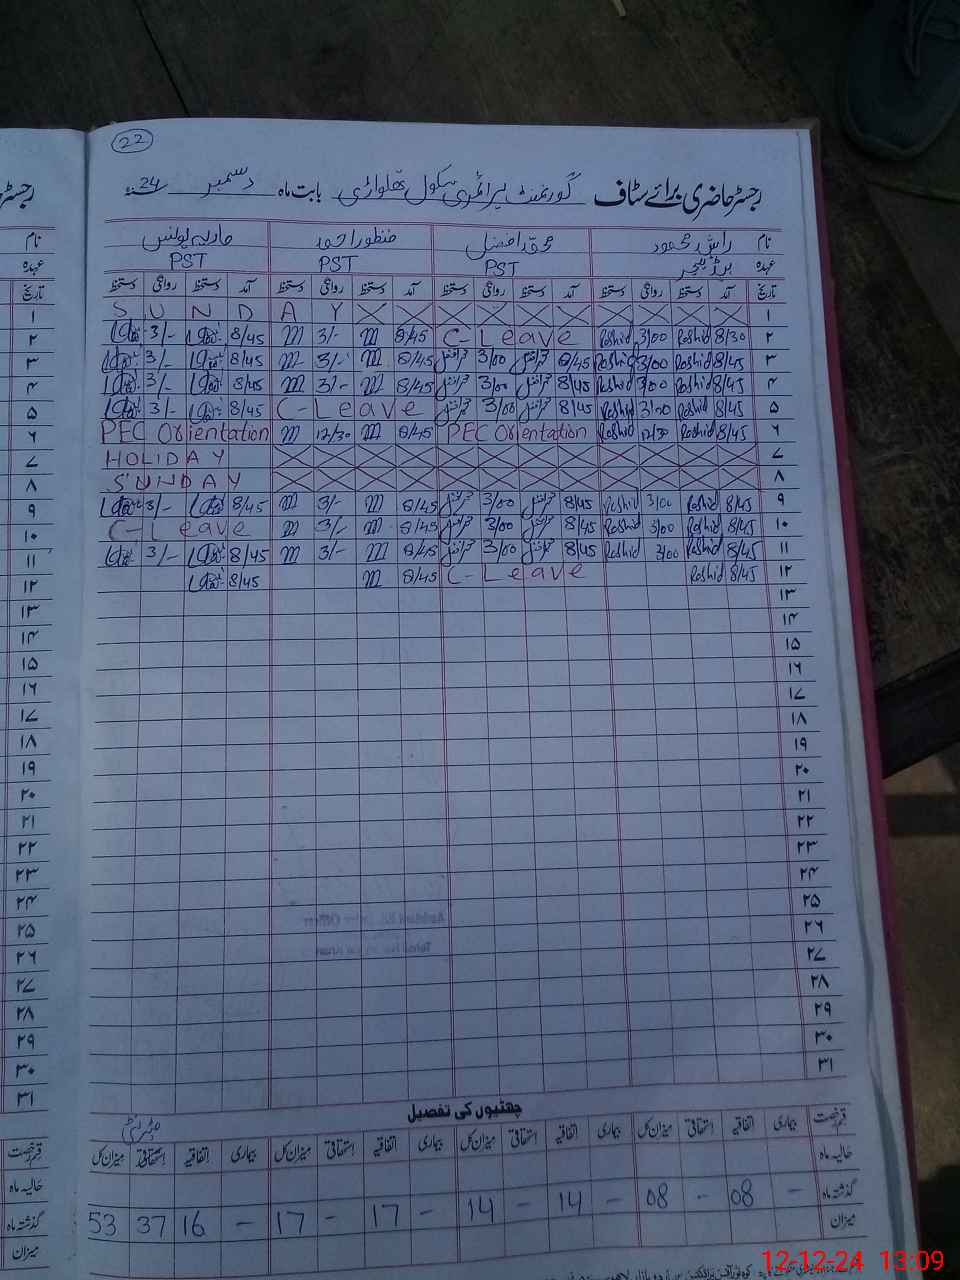 22
رجسٹر حاضری برائے سٹاف گورنمنٹ پرائمری سکول پھلواڑی بابت ماہ دسمبر 24
نام راشد محمود محمد افضل منظور احمد ماریہ یونس
عہدہ ہیڈ ٹیچر PST PST PST
تاریخ آمد دستخط روانگی دستخط آمد دستخط روانگی دستخط آمد دستخط روانگی دستخط آمد دستخط روانگی دستخط
۱ S U N D A Y
۲ 3/- 8/45 m 3/- m 8/45 C-Leave Rashid 3/00 Rashid 8/30
۳ 3/- 8/45 m 3/- m 8/45 3/00 8/45 Rashid 3/00 Rashid 8/45
۴ 3/- 8/45 m 3/- m 8/45 3/00 8/45 Rashid 3/00 Rashid 8/45
۵ 3/- 8/45 C-Leave 3/00 8/45 Rashid 3/00 Rashid 8/45
۶ PEC Orientation m 12/30 m 8/45 PEC Orientation Rashid 12/30 Rashid 8/45
۷ HOLIDAY
۸ SUNDAY
۹ 3/- 8/45 m 3/- m 8/45 3/00 8/45 Rashid 3/00 Rashid 8/45
۱۰ C-Leave m 3/- m 8/45 3/00 8/45 Rashid 3/00 Rashid 8/45
۱۱ 3/- 8/45 m 3/- m 8/45 3/00 8/45 Rashid 3/00 Rashid 8/45
۱۲ 8/45 m 8/45 C-Leave Rashid 8/45
۱۳
۱۴
۱۵
۱۶
۱۷
۱۸
۱۹
۲۰
۲۱
۲۲
۲۳
۲۴
۲۵
۲۶
۲۷
۲۸
۲۹
۳۰
۳۱
چھٹیوں کی تفصیل
قسم رخصت بیماری اتفاقیہ استحقاقی میزان کل بیماری اتفاقیہ استحقاقی میزان کل بیماری اتفاقیہ استحقاقی میزان کل بیماری اتفاقیہ استحقاقی میزان کل
حالیہ ماہ
گذشتہ ماہ - 08 - 08 - 14 - 14 - 17 - 17 - 16 37 53
میزان
12-12-24 13:09